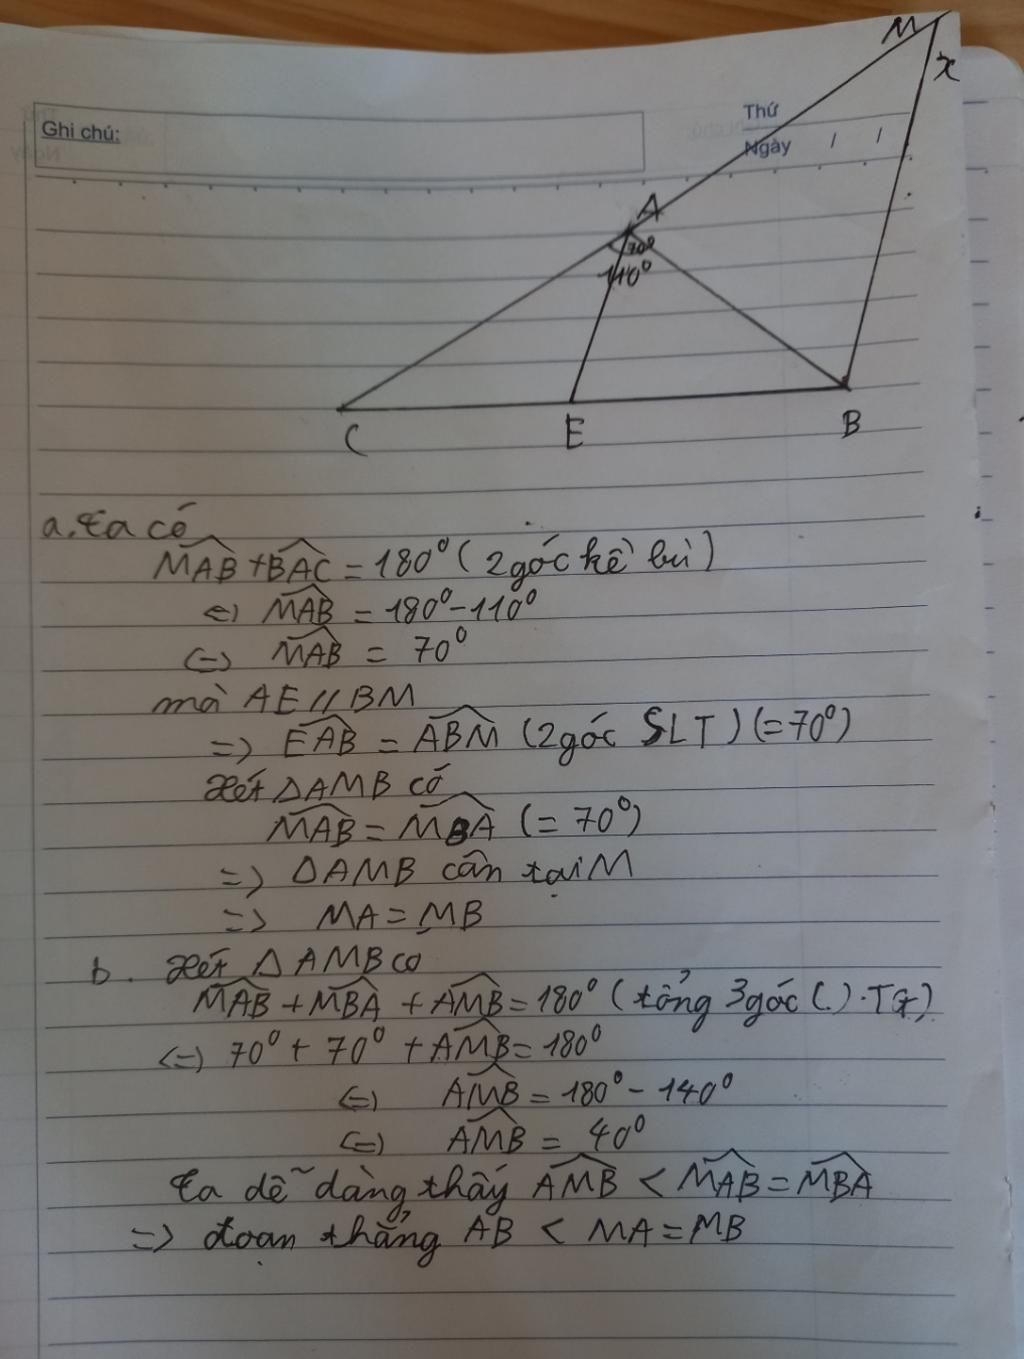 M
x
Ghi chú:
Thứ
Ngày / /
A
70°
110°
C E B
a. Ta có
MAB + BAC = 180° (2 góc kề bù)
<=> MAB = 180° - 110°
<=> MAB = 70°
mà AE // BM
=> EAB = ABM (2 góc SLT) (= 70°)
xét △AMB có
MAB = MBA (= 70°)
=> △AMB cân tại M
=> MA = MB
b. xét △AMB có
MAB + MBA + AMB = 180° (tổng 3 góc (.) . TG)
<=> 70° + 70° + AMB = 180°
<=> AMB = 180° - 140°
<=> AMB = 40°
Ta dễ dàng thấy AMB < MAB = MBA
=> đoạn thẳng AB < MA = MB